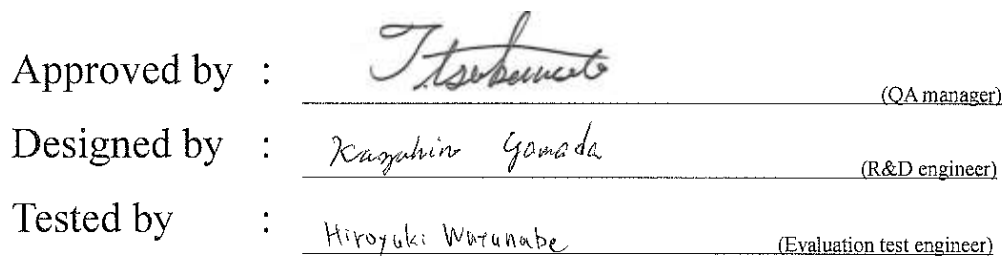 Approved by : 
(QA manager)
Designed by : Kazuhiro Yamada
(R&D engineer)
Tested by : Hiroyuki Watanabe
(Evaluation test engineer)